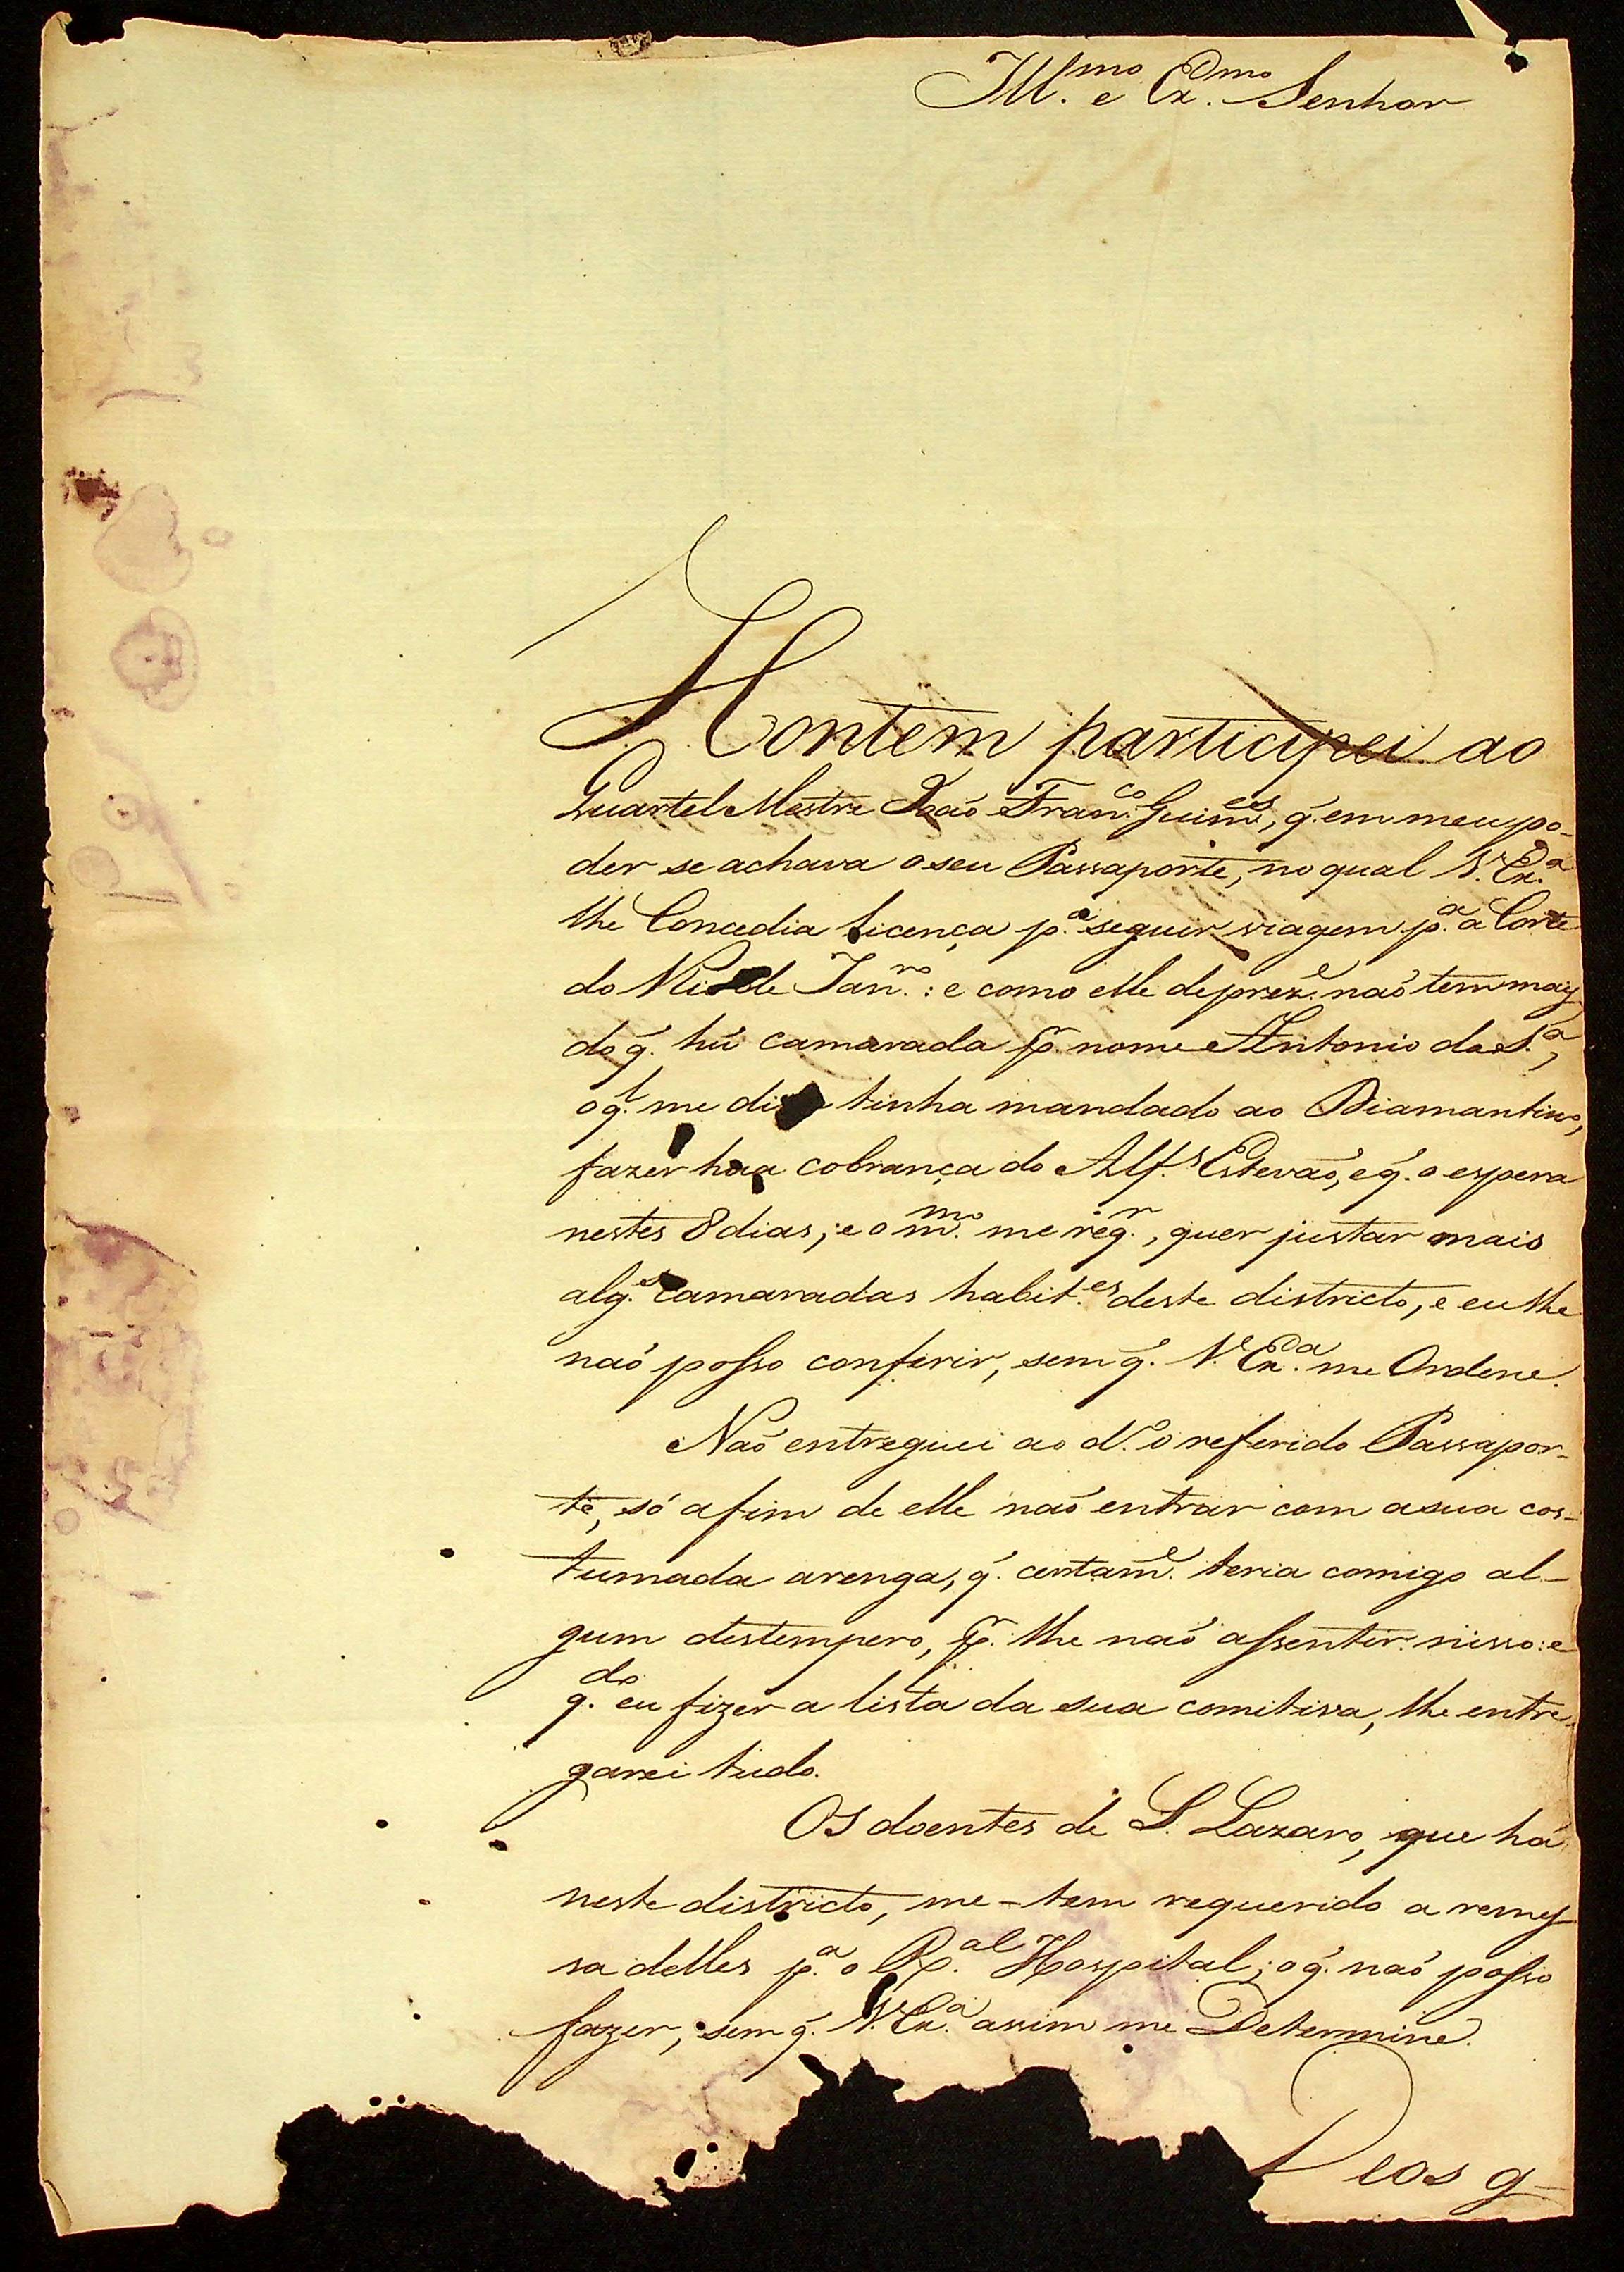 Ill.mo e Ex.mo Senhor
Hontem participei ao
Quartel Mestre Joaõ Fran.co Guim.es, q̃. em meu po-
der se achava o seu Passaporte, no qual V. Ex.a
lhe Concedia licença p.a seguir viagem p.a a Corte
do Rio de Jan.ro: e como elle de prez.e naõ tem mais
do q̃. hú camarada p.r nome Antonio da S.a,
o q.l me disse tinha mandado ao Diamantino,
fazer hũa cobrança do Alf.s Estevaõ, e q̃. o espera
nestes 8 dias; e o m.mo me req.r, quer justar mais
alg.s camaradas habit.es deste districto, e eu lhe
naõ posso conferir, sem q̃. V. Ex.a me Ordene.
Naõ entreguei ao d.o o referido Passapor-
te, só afim de elle naõ entrar com a sua cos-
tumada arenga, q̃. certam.e teria comigo al-
gum destempero, p.r lhe naõ assentir nisso: e
q.do eu fizer a lista da sua comitiva, lhe entre-
garei tudo.
Os doentes de S. Lazaro, que há
neste districto, me-tem requerido a remes-
sa delles p.a o R.al Hospital; o q̃. naõ posso
fazer, sem q̃. V. Ex.a assim me Determine.
Deos g-